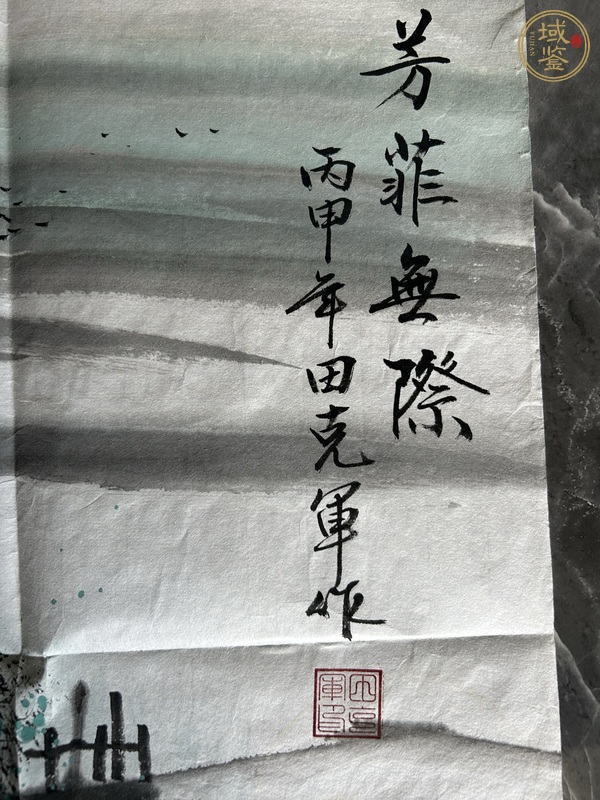 芳菲無際
丙申年田克軍作
域鉴
YUJIAN